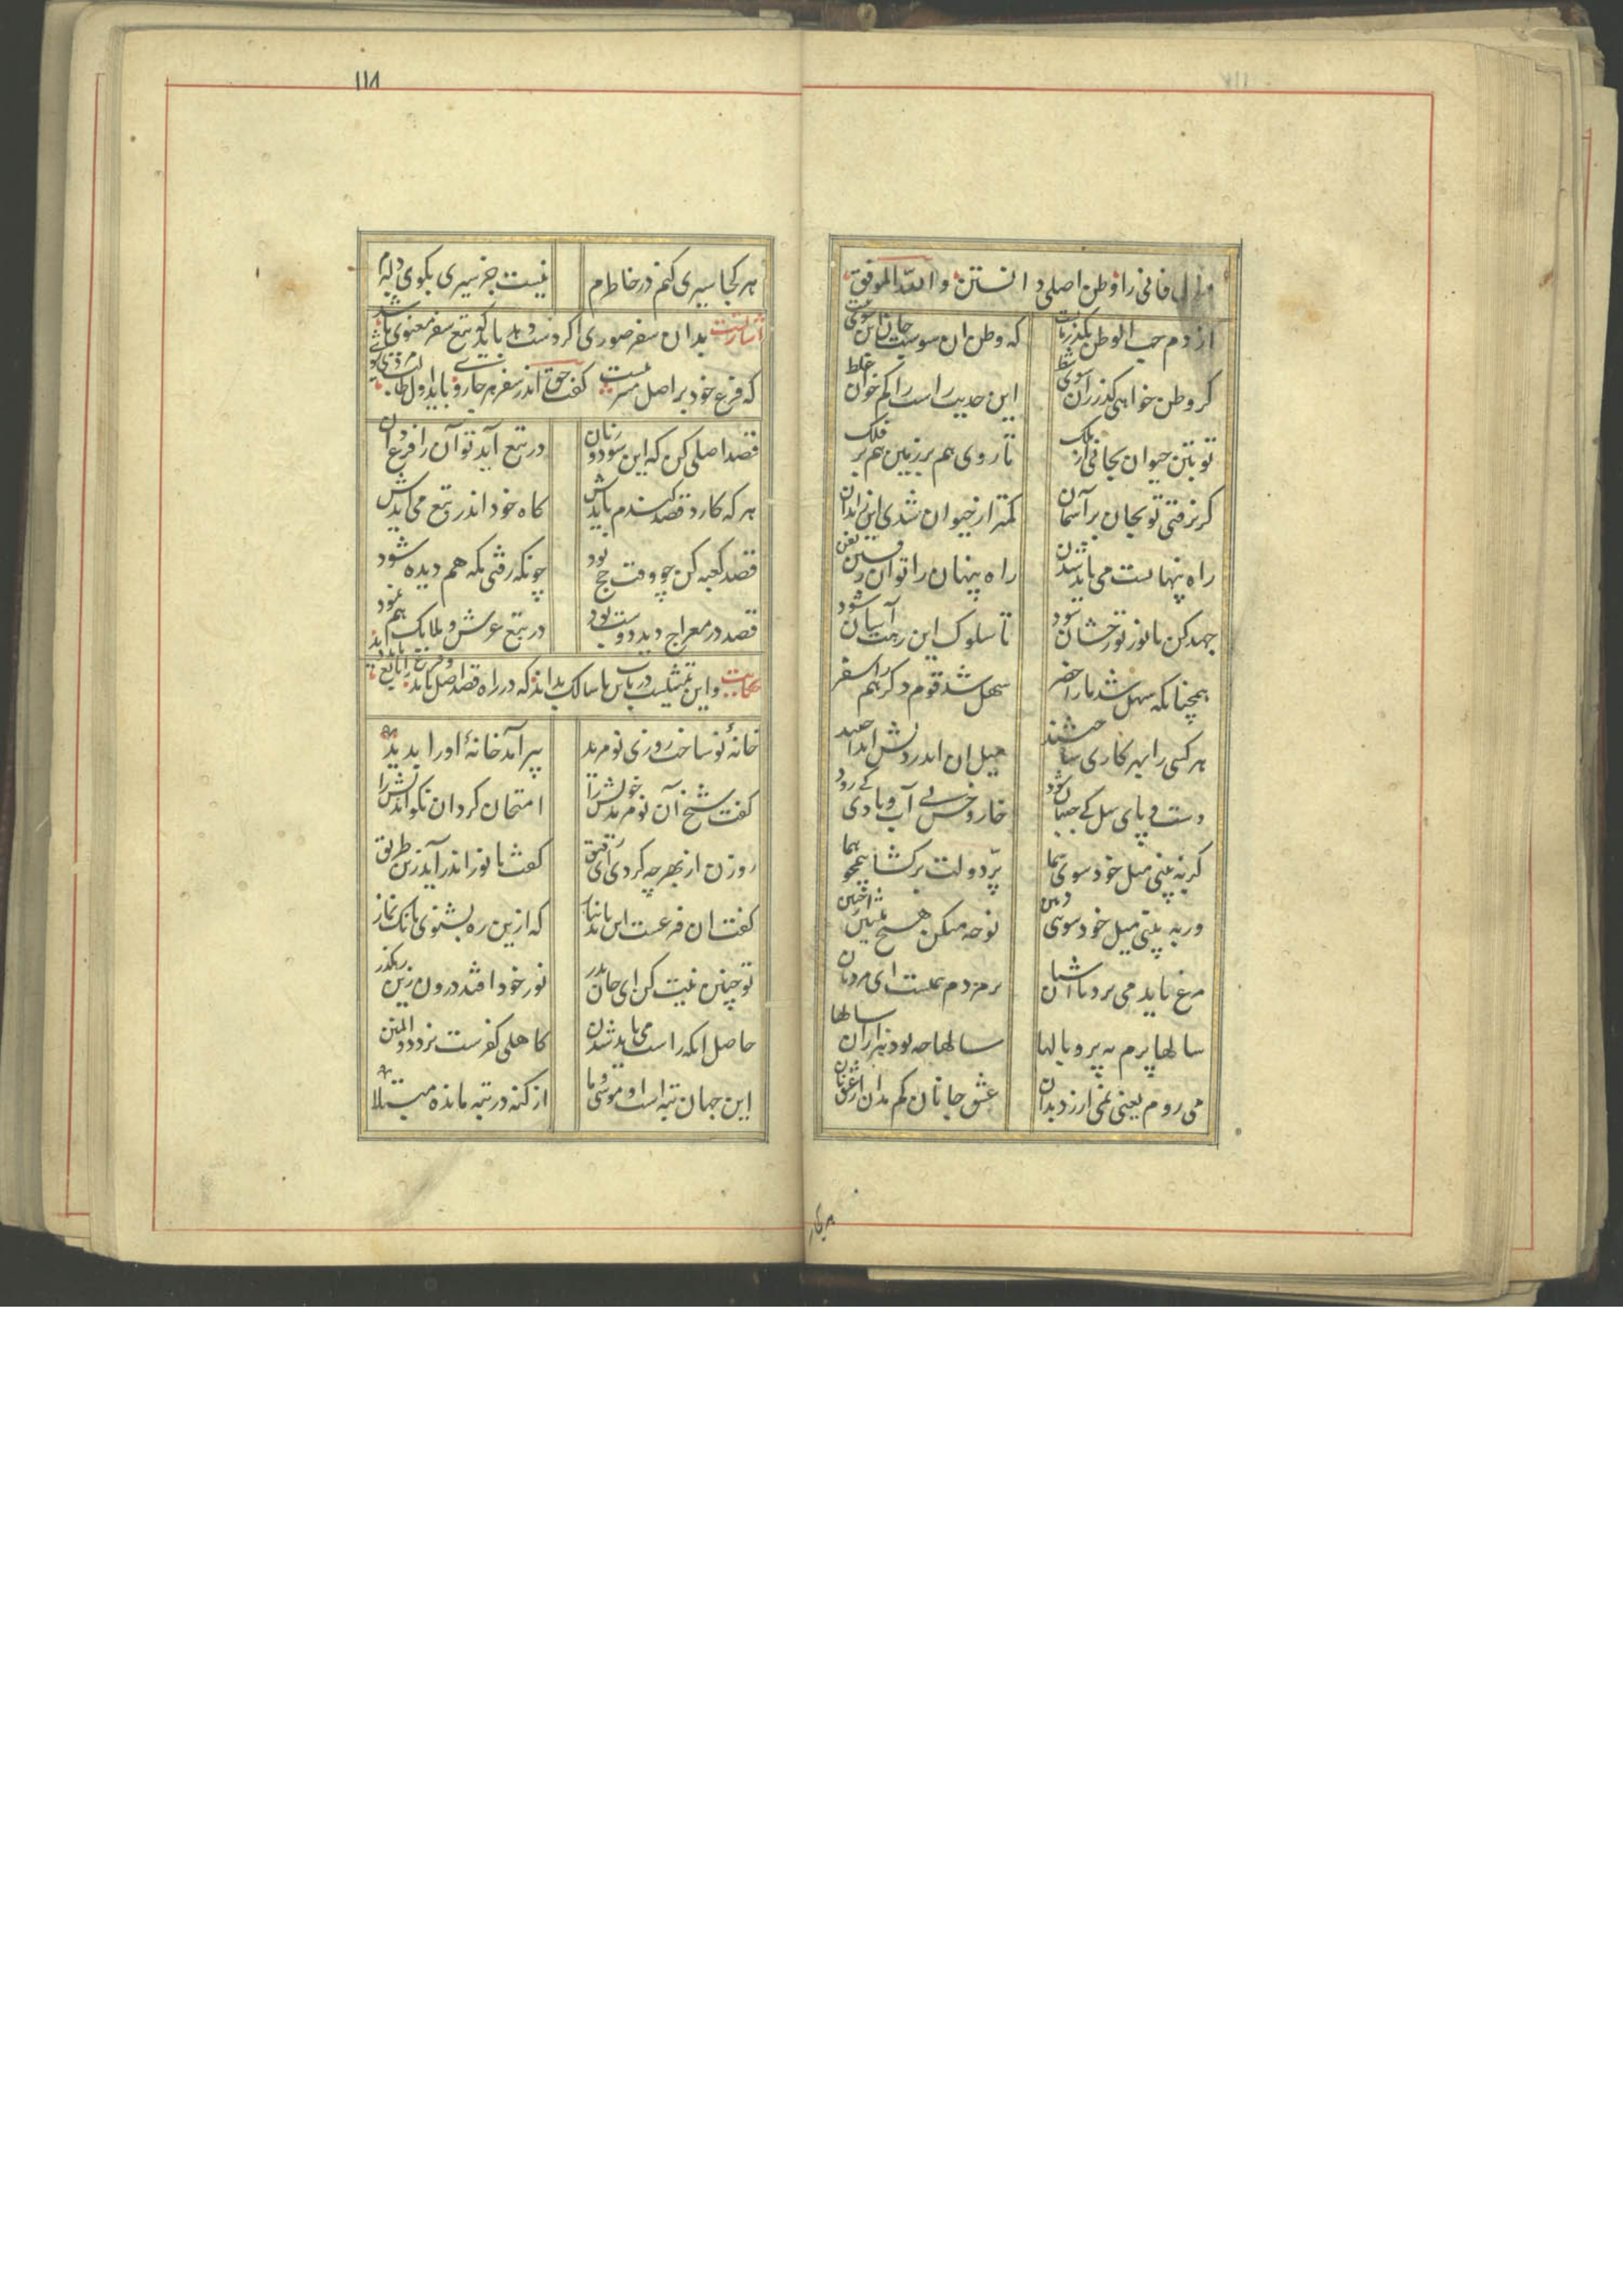 ۱۱۸
منزل فانی را وطن اصلی دانستن والله الموفق
از دم حب الوطن بگذر مایست که وطن آن سوست جان این سوی نیست
گر وطن خواهی گذر زان سوی شط این حدیث راست را کم خوان غلط
تو بتن حیوان بجانی از ملک تا روی هم بر زمین هم بر فلک
گر نرفتی تو بجان بر آسمان کمتر از حیوان شدی این را بدان
راه پنهانست می باید شدن راه پنهان را توان
جهد کن تا نور تو رخشان شود تا سلوک این رهت آسان شود
همچنانکه سهل شد ما را حضر سهل شد قوم دگر را هم سفر
هر کسی را بهر کاری ساختند میل آن اندر دلش انداختند
دست و پای میل کی جنبان شود خار و خس بی آب و بادی کی رود
گر به بینی میل خود سوی سما پر دولت برکشا همچو هما
ور به بینی میل خود سوی زمین نوحه میکن هیچ منشین از حنین
مرغ باید می پرد تا آشیان پر مردم همتست ای مردمان
سالها پرم به پر و بالها سالها چه بود هزاران سالها
می روم یعنی نمی ارزد بدان عشق جانان کم مدان از عشق نان
هر کجا
هر کجا سیری کنم در خاطرم نیست جز سیری بکوی دلبرم
اشارت بدان سفر صوری اگر دست دهد باید که بتبع سفر معنوی باشد
که فرع خود بر اصل گفت حق اندر سفر هر جا روی باید اول طالب مردی شوی
قصد اصلی کن که این سود و زیان در تبع آید تو آن را فرع دان
هر که کارد قصد گندم بایدش کاه خود اندر تبع می آیدش
قصد کعبه کن چو وقت حج بود چونکه رفتی مکه هم دیده شود
قصد در معراج دید دوست بود در تبع عرش و ملایک هم نمود
حکایت و این تمثیلست در باب تا سالک بداند که در راه قصد اصل باید
خانهٔ نو ساخت روزی نو مرید پیر آمد خانهٔ او را بدید
گفت شیخ آن نو مرید خویش را امتحان کرد آن نکو اندیش را
روزن از بهر چه کردی ای رفیق گفت تا نور اندر آید زین طریق
گفت آن فرعست این باید نیاز که ازین ره بشنوی بانگ نماز
تو چنین نیت کن ای جان پدر نور خود افتد درون زین رهگذر
حاصل آنکه راست می باید شدن کاهلی کفرست نزد
این جهان تیه است و تو موسی و ما از گنه در تیه مانده مبتلا